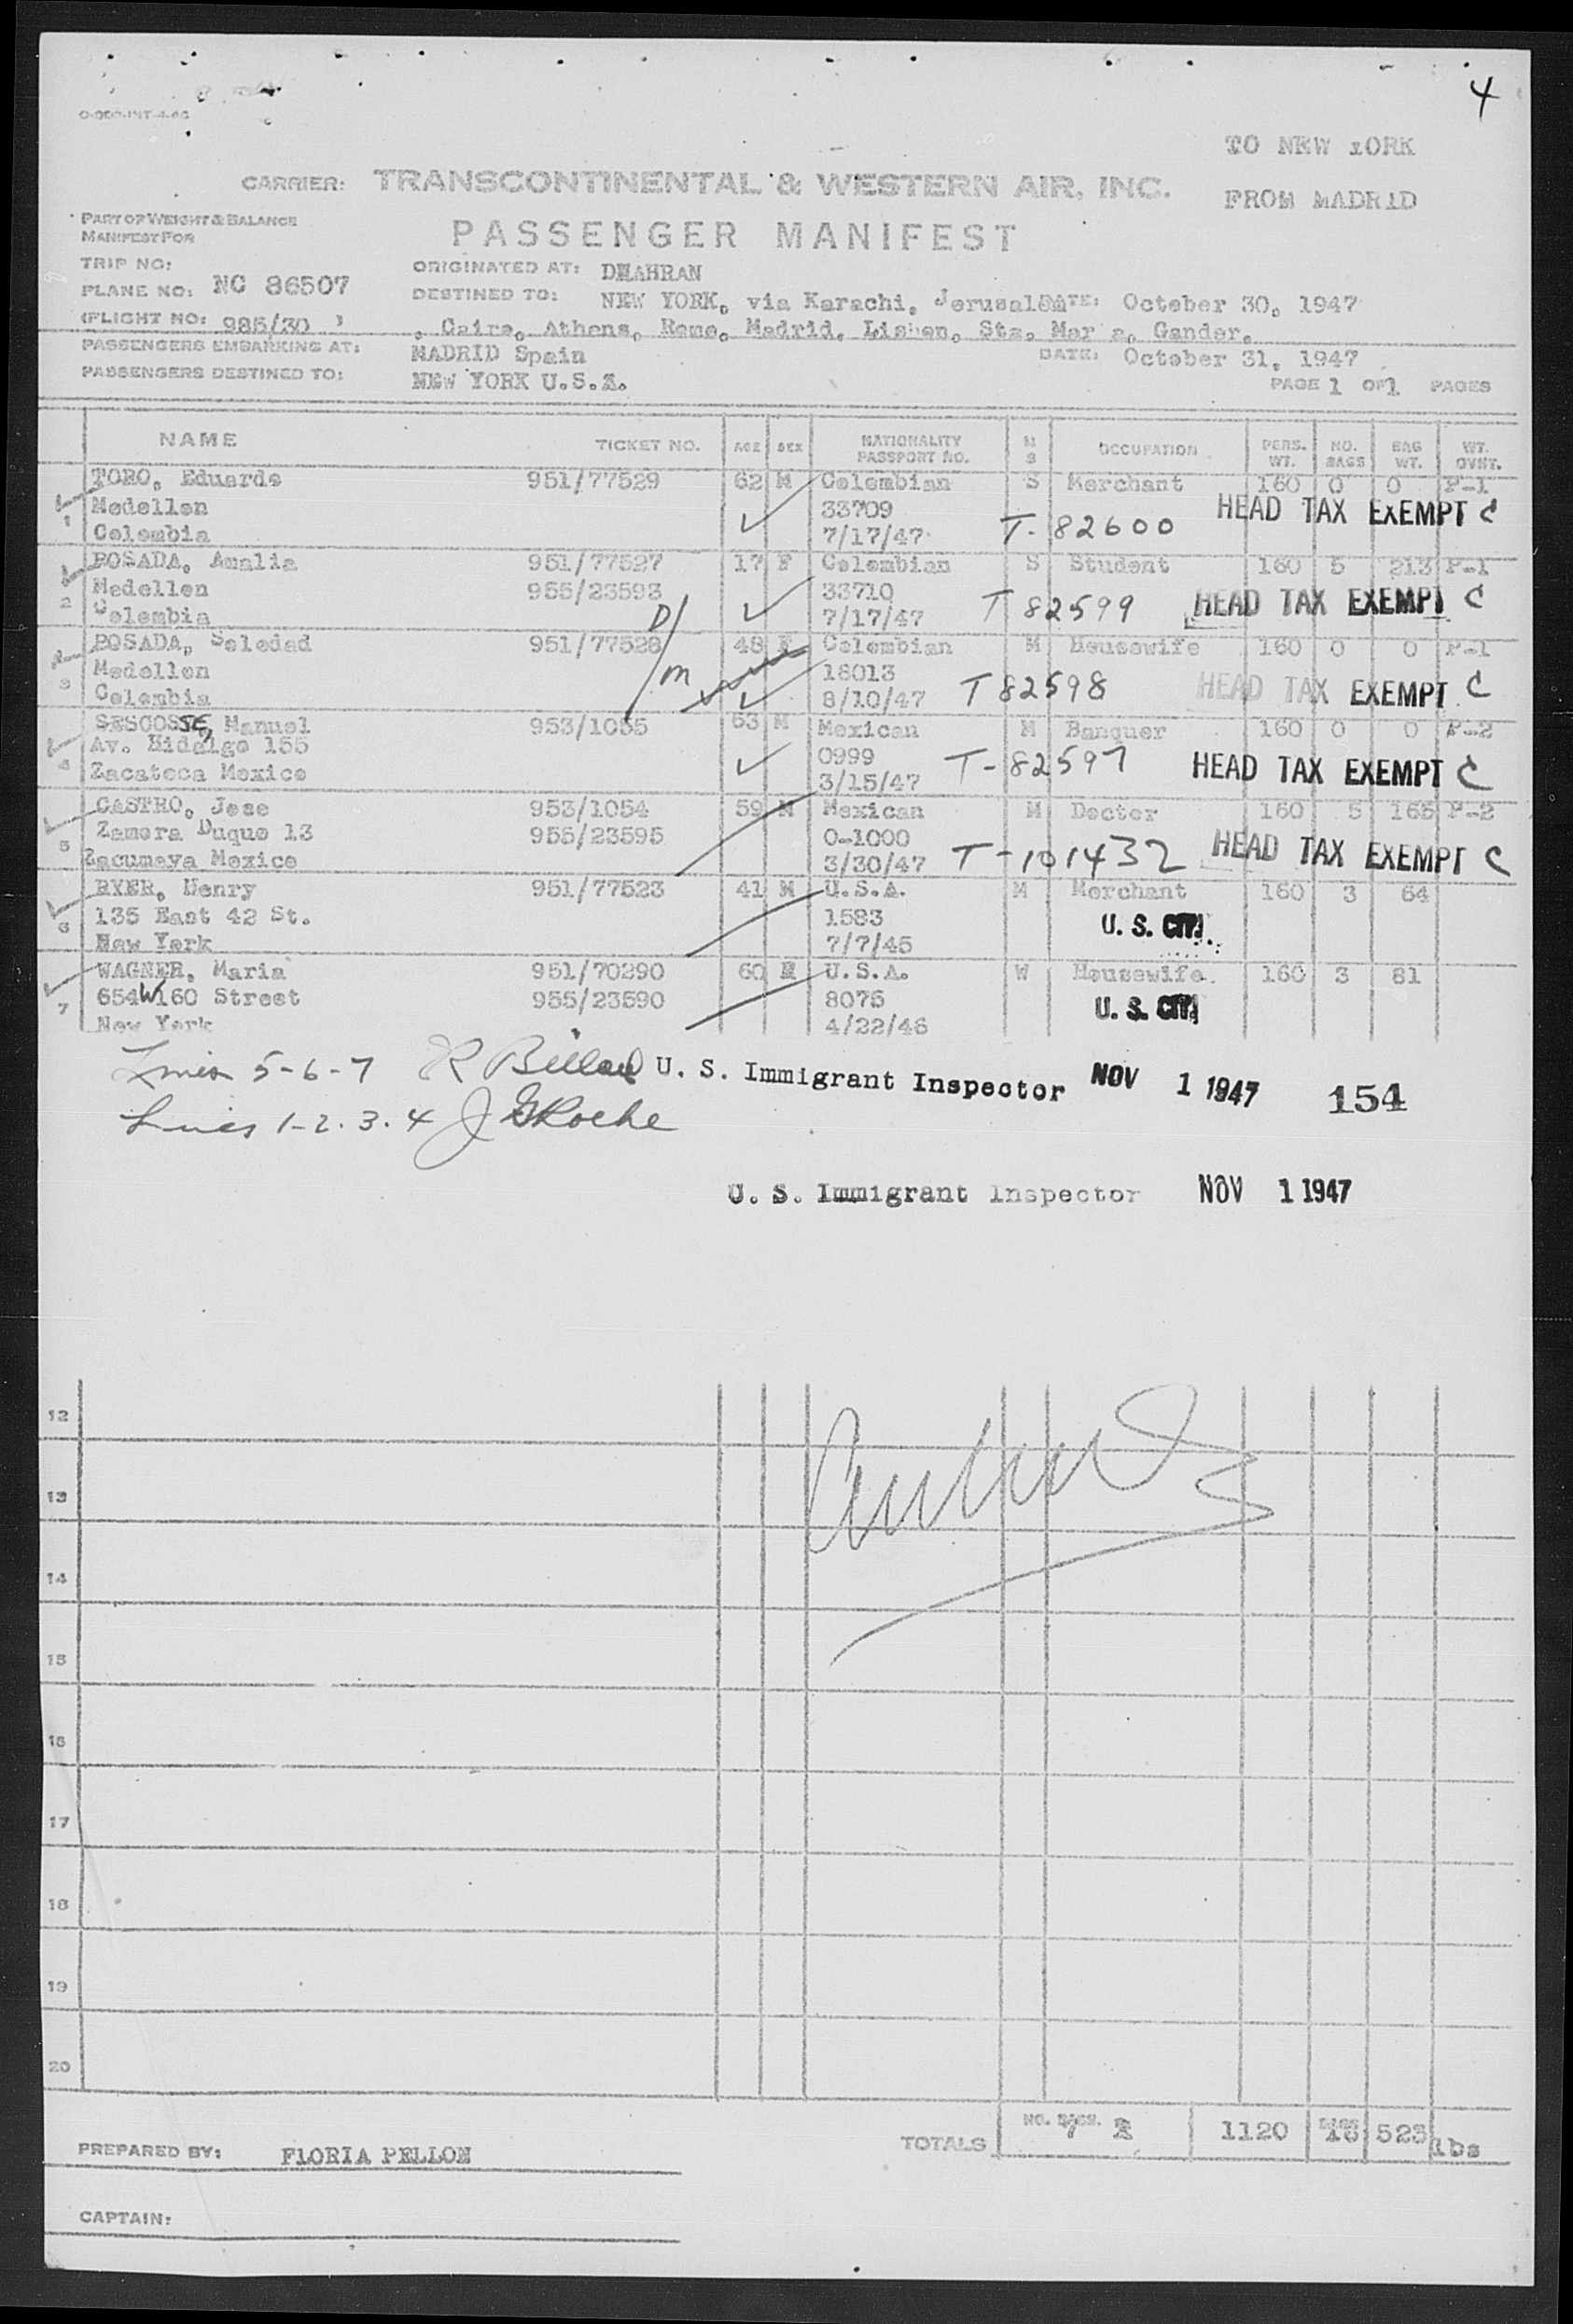 4
TO NEW YORK
CARRIER: TRANSCONTINENTAL & WESTERN AIR, INC.
FROM MADRID
PART OF WEIGHT & BALANCE
MANIFEST FOR
PASSENGER MANIFEST
TRIP NO:
ORIGINATED AT: DHAHRAN
PLANE NO: NC 86507
DESTINED TO: NEW YORK, via Karachi, Jerusalem DATE: October 30, 1947
(FLIGHT NO: 985/30 )
, Cairo, Athens, Rome, Madrid, Lisbon, Sta. Mar a, Gander.
PASSENGERS EMBARKING AT: MADRID Spain DATE: October 31, 1947
PASSENGERS DESTINED TO: NEW YORK U.S.A. PAGE 1 OF 1 PAGES
NAME TICKET NO. AGE SEX NATIONALITY PASSPORT NO. M S OCCUPATION PERS. WT. NO. BAGS BAG WT. WT. GVNT.
TORO, Eduardo 951/77529 62 M Colombian S Merchant 160 0 0 P-1
Medellon 33709 HEAD TAX EXEMPT C
1 Colombia 7/17/47 T-82600
POSADA, Amalia 951/77527 17 F Colombian S Student 160 5 213 P-1
2 Medellon 955/23593 33710 HEAD TAX EXEMPT C
Colombia D/m 7/17/47 T 82599
POSADA, Soledad 951/77528 48 F Colombian M Housewife 160 0 0 P-1
3 Medellon 18013 HEAD TAX EXEMPT C
Colombia 8/10/47 T 82598
SESCOSSE, Manuel 953/1055 53 M Mexican M Banquer 160 0 0 P-2
Av. Hidalgo 155 0999 T-82597 HEAD TAX EXEMPT C
4 Zacateca Mexico 3/15/47
CASTRO, Jose 953/1054 59 M Mexican M Doctor 160 5 165 P-2
5 Zamora Duque 13 955/23595 0-1000 HEAD TAX EXEMPT C
Zacumaya Mexico 3/30/47 T-101432
RYER, Henry 951/77523 41 M U.S.A. M Merchant 160 3 64
6 135 East 42 St. 1583 U. S. CIT.
New York 7/7/45
WAGNER, Maria 951/70290 60 F U.S.A. W Housewife. 160 3 81
7 654 W 160 Street 955/23590 8075 U. S. CIT.
New York 4/22/46
Lines 5-6-7 U. S. Immigrant Inspector NOV 1 1947 154
Lines 1-2.3.4 J G Roche
U. S. Immigrant Inspector NOV 1 1947
12
13
14
15
16
17
18
19
20
TOTALS NO. PSGS. 7 1120 BAGS 16 523 lbs
PREPARED BY: FlORIA PELLON
CAPTAIN: